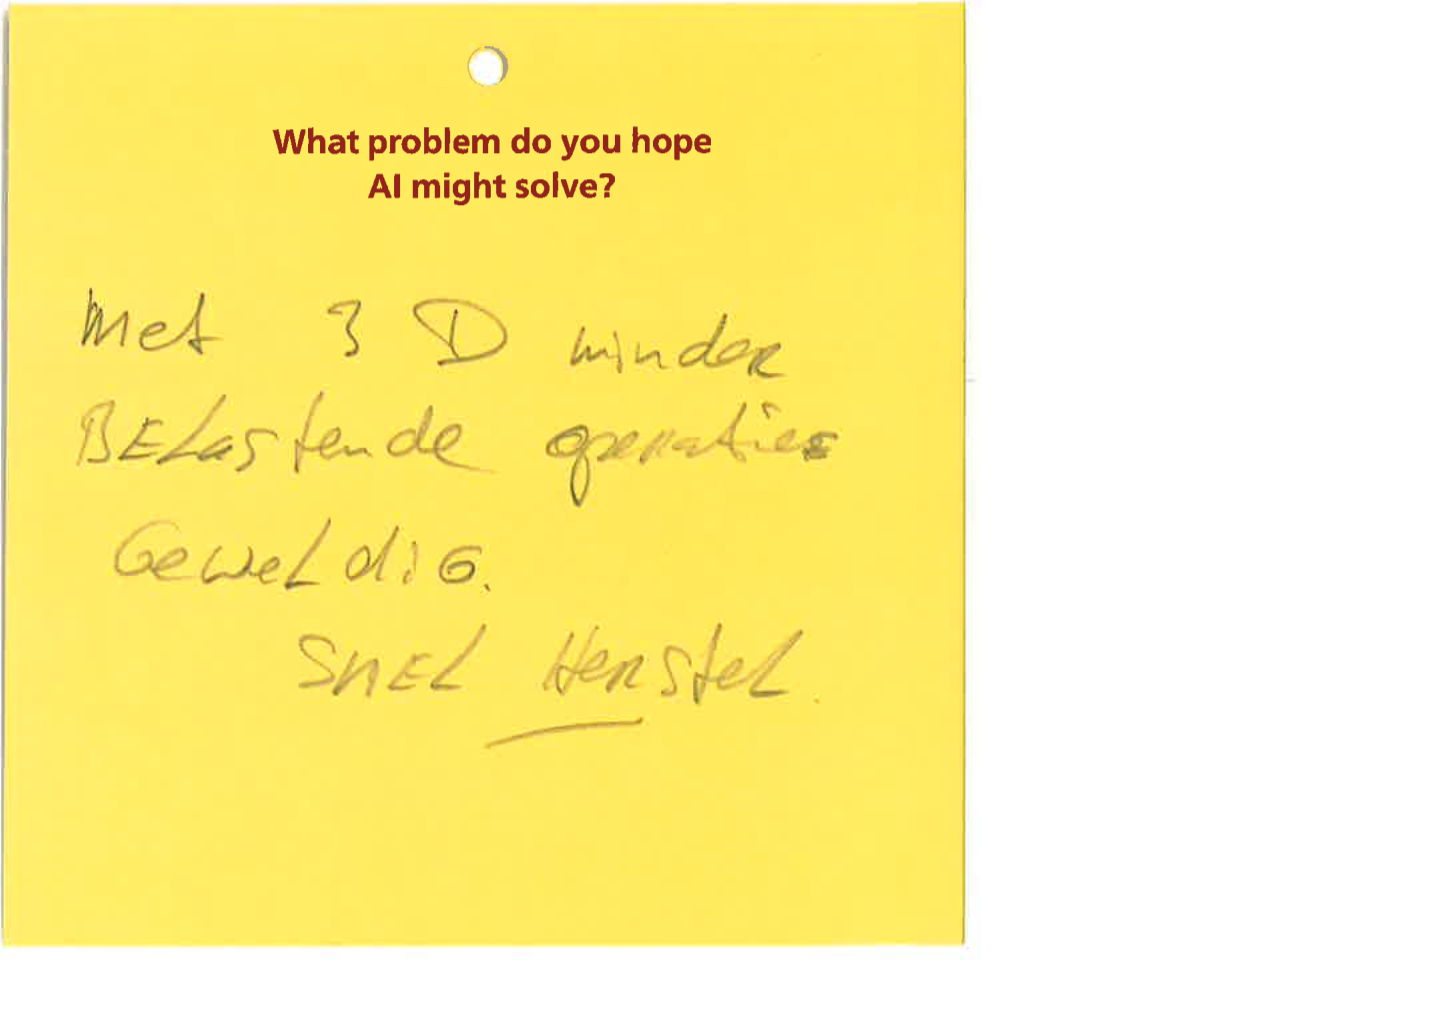 What problem do you hope
AI might solve?
Met 3 D minder
BELastende operaties
GeweLdiG.
SNEL HersteL.